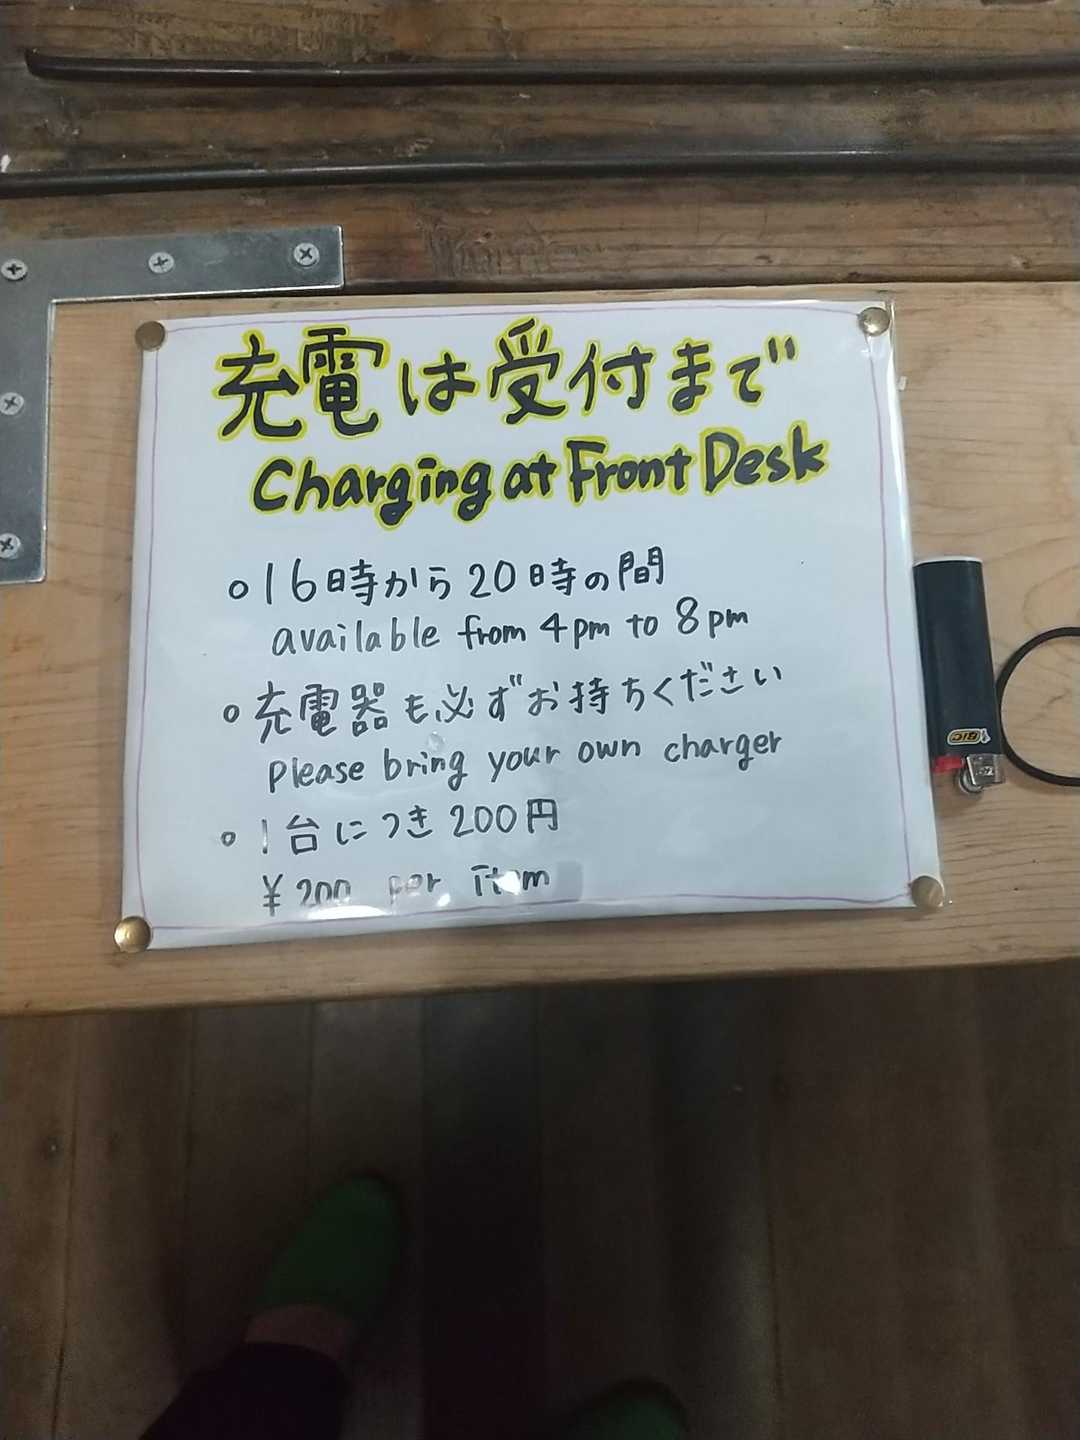 充電は受付まで
Charging at Front Desk
○16時から20時の間
available from 4pm to 8pm
○充電器も必ずお持ちください
Please bring your own charger
○1台につき200円
¥200 per item
BIC